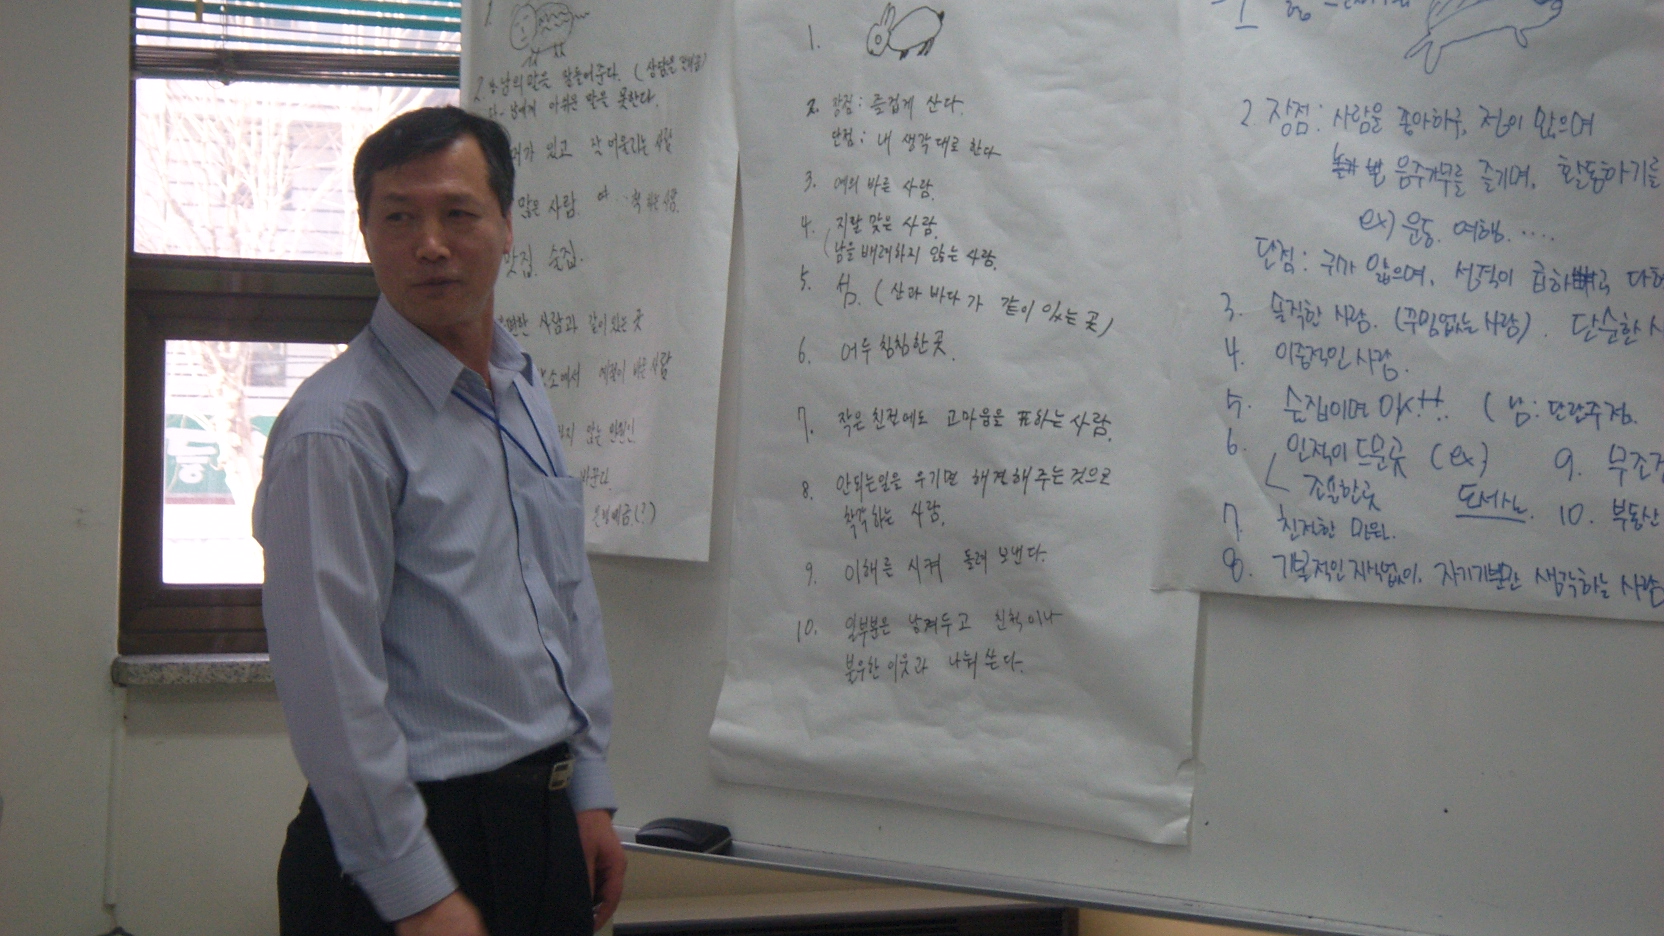 1
2. 남의 말은 잘들어준다. (상담을
남에게 아쉬운 말을 못한다.
가 있고 잘 어울리는 사람
많은 사람. 척 하는 사람.
맛집. 술집.
편한 사람과 같이 있는 곳
소에서 예절이 바른 사람
않는
바꾼다.
은행예금(?)
1.
2. 장점: 즐겁게 산다.
단점: 내 생각대로 한다
3. 예의 바른 사람.
4. 지랄 맞은 사람.
(남을 배려하지 않는 사람.
5. 섬. (산과 바다가 같이 있는 곳)
6. 어두 침침한 곳.
7. 작은 친절에도 고마움을 표하는 사람.
8. 안되는일을 우기면 해결해 주는것으로
착각하는 사람.
9. 이해를 시켜 돌려 보낸다.
10. 일부분은 남겨두고 친척이나
불우한 이웃과 나눠 쓴다.
1
2. 장점: 사람을 좋아하구, 정이 많으며
음주가무를 즐기며, 활동하기를
ex) 운동. 여행. ....
단점: 귀가 얇으며, 성격이 급하고 다혈
3. 솔직한 사람. (꾸밈없는 사람). 단순한 사
4. 이중적인 사람.
5. 술집이며 마시!!. (남: 단란주점.
6. 인적이 드문곳 (ex) 9. 무조건
조용한곳 도서관. 10. 부동산
7. 친절한 민원.
8. 기본적인 지식없이, 자기기분만 생각하는 사람